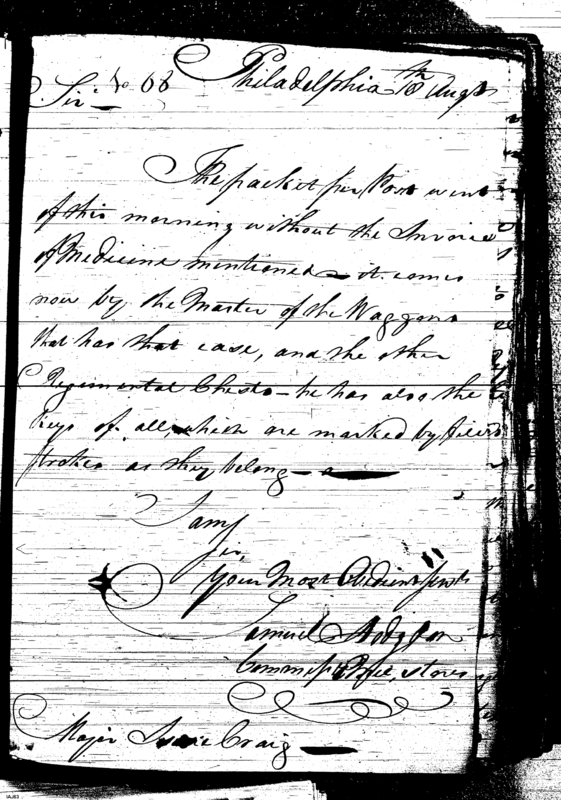 Philadelphia 18th Augt
Sir No 68
The packet per Post went
of this morning without the Invoice
of Medicine mentioned - it comes
now by the Master of the Waggons
that has that case, and the other
Regimental Chests - he has also the
keys of all, which are marked by
strokes as they belong -
I am
Sir,
Your Most Obedient Servt
Samuel Hodgdon
Commissy Mile, stores
Major Isaac Craig